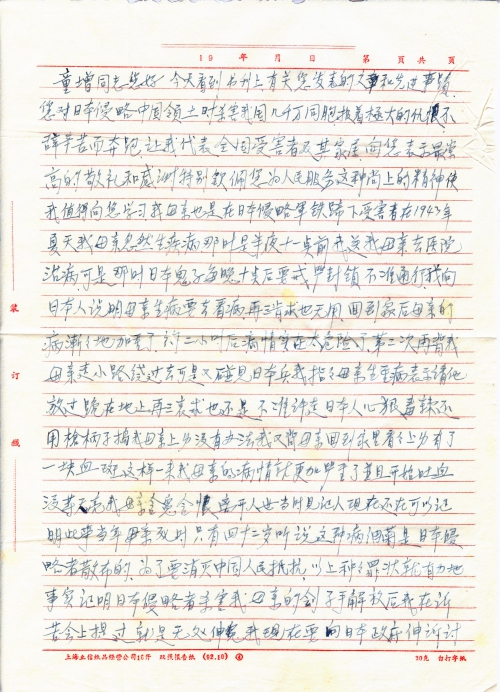 19 年 月 日 第 页共 页
童增同志您好 今天看到书刊上有关您发表的文章和先进事迹
您对日本侵略中国领土时杀害我国几千万同胞抱着极大的仇恨不
辞辛苦而奔跑.让我代表全国受害者及其家属向您表示最崇
高的敬礼和感谢特别钦佩您为人民服务这种尚上的精神使
我值得向您学习我母亲也是在日本侵略军铁蹄下受害者在1943年
夏天我母亲忽然生疾病那时是半夜十点前我送我母亲去医院
治病.可是那时日本鬼子每晚十点后要戒严封锁不准通行我向
日本人说明母亲生病要去看病再三哀求也无用.回到家后母亲的
病渐渐地加重了.许二小时后病情实在太危险了第二次再背我
母亲走小路绕过去可是又碰见日本兵我指指母亲生重病表示请他
放过跪在地上再三哀求也还是不准许走日本人心狠毒辣不
用枪柄子捣我母亲上身没有办法我又背母亲回到家里看看上身有了
一块血斑这样一来我母亲的病情就更加严重了并且开始吐血
没几天我母亲含恨离开人世当时见证人现在还在可以证
明此事当年母亲死时只有四十二岁听说这种病细菌是日本侵
略者散布的.为了要消灭中国人民抵抗.以上种种罪状就有力地
事实证明日本侵略者杀害我母亲的刽子手解放后我在诉
苦会上提过就是无处伸冤我现在要向日本政府伸诉讨
装
订
线
上海立信纸品经营公司16开 双页报告纸 (92.10) ④ 70克 白打字纸